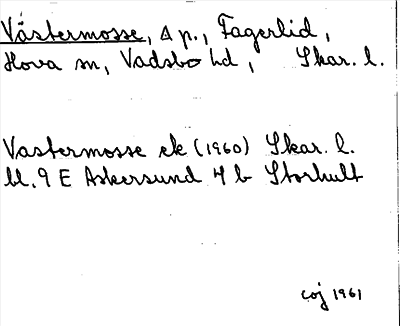 Västermosse, Δ p., Fagerlid,
Hova sn, Vadsbo hd, Skar. l.
Vastermosse ek (1960) Skar. l.
bl. 9 E Askersund 4 b Storhult
coj 1961